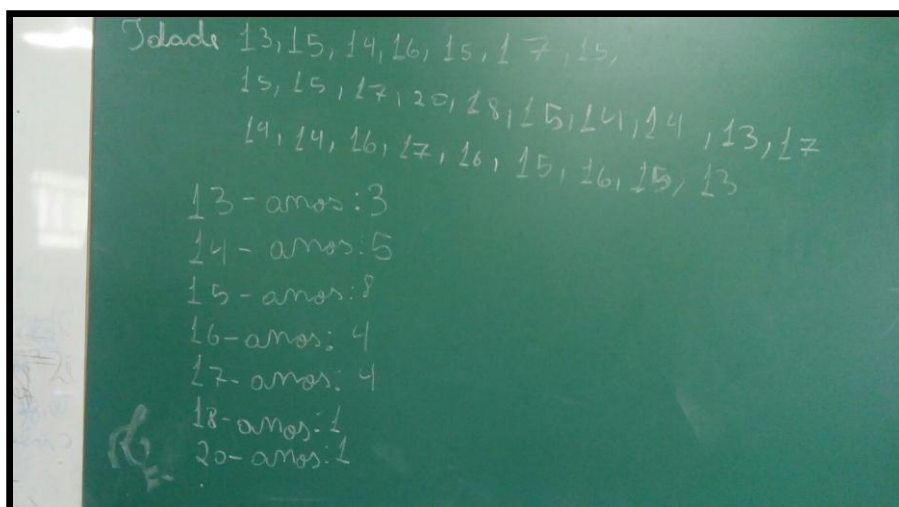 Idade 13, 15, 14, 16, 15, 17, 15,
15, 15, 17, 20, 18, 15, 14, 14, 13, 17
14, 14, 16, 17, 16, 15, 16, 15, 13
13-anos: 3
14-anos: 5
15-anos: 8
16-anos: 4
17-anos: 4
18-anos: 1
20-anos: 1